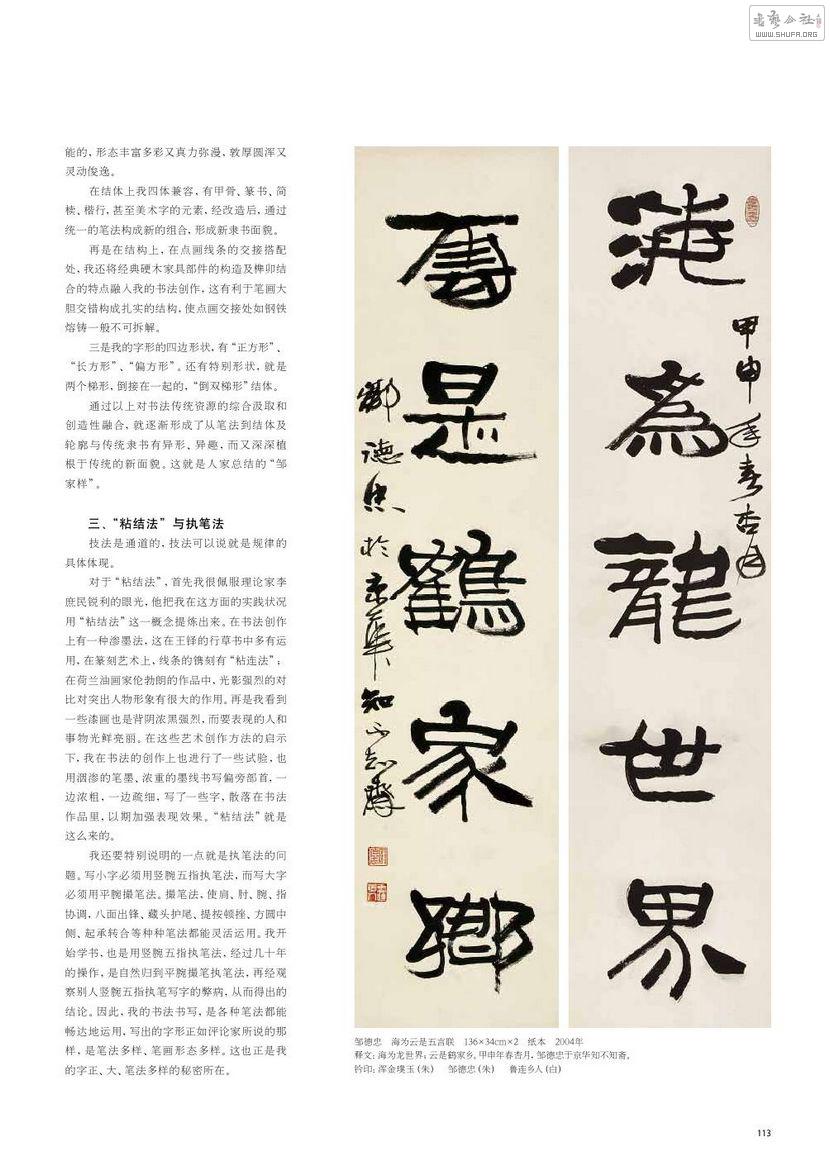 書艺公社
WWW.SHUFA.ORG
能的，形态丰富多彩又真力弥漫，敦厚圆浑又
灵动俊逸。
在结体上我四体兼容，有甲骨、篆书、简
椟、楷行，甚至美术字的元素，经改造后，通过
统一的笔法构成新的组合，形成新隶书面貌。
再是在结构上，在点画线条的交接搭配
处，我还将经典硬木家具部件的构造及榫卯结
合的特点融入我的书法创作，这有利于笔画大
胆交错构成扎实的结构，使点画交接处如钢铁
熔铸一般不可拆解。
三是我的字形的四边形状，有“正方形”、
“长方形”、“偏方形”。还有特别形状，就是
两个梯形，倒接在一起的，“倒双梯形”结体。
通过以上对书法传统资源的综合汲取和
创造性融合，就逐渐形成了从笔法到结体及
轮廓与传统隶书有异形、异趣，而又深深植
根于传统的新面貌。这就是人家总结的“邹
家样”。
三、“粘结法”与执笔法
技法是通道的，技法可以说就是规律的
具体体现。
对于“粘结法”，首先我很佩服理论家李
庶民锐利的眼光，他把我在这方面的实践状况
用“粘结法”这一概念提炼出来。在书法创作
上有一种渗墨法，这在王铎的行草书中多有运
用，在篆刻艺术上，线条的镌刻有“粘连法”；
在荷兰油画家伦勃朗的作品中，光影强烈的对
比对突出人物形象有很大的作用。再是我看到
一些漆画也是背阴浓黑强烈，而要表现的人和
事物光鲜亮丽。在这些艺术创作方法的启示
下，我在书法的创作上也进行了一些试验，也
用洇渗的笔墨、浓重的墨线书写偏旁部首，一
边浓粗，一边疏细，写了一些字，散落在书法
作品里，以期加强表现效果。“粘结法”就是
这么来的。
我还要特别说明的一点就是执笔法的问
题。写小字必须用竖腕五指执笔法，而写大字
必须用平腕撮笔法。撮笔法，使肩、肘、腕、指
协调，八面出锋、藏头护尾、提按顿挫、方圆中
侧、起承转合等种种笔法都能灵活运用。我开
始学书，也是用竖腕五指执笔法，经过几十年
的操作，是自然归到平腕撮笔执笔法，再经观
察别人竖腕五指执笔写字的弊病，从而得出的
结论。因此，我的书法书写，是各种笔法都能
畅达地运用，写出的字形正如评论家所说的那
样，是笔法多样、笔画形态多样。这也正是我
的字正、大、笔法多样的秘密所在。
海為龍世界
甲申年春杏月
雲是鶴家鄉
鄒德忠於京華知不知齋
邹德忠　海为云是五言联　136×34cm×2　纸本　2004年
释文：海为龙世界；云是鹤家乡。甲申年春杏月，邹德忠于京华知不知斋。
钤印：浑金璞玉（朱）　邹德忠（朱）　鲁连乡人（白）
113